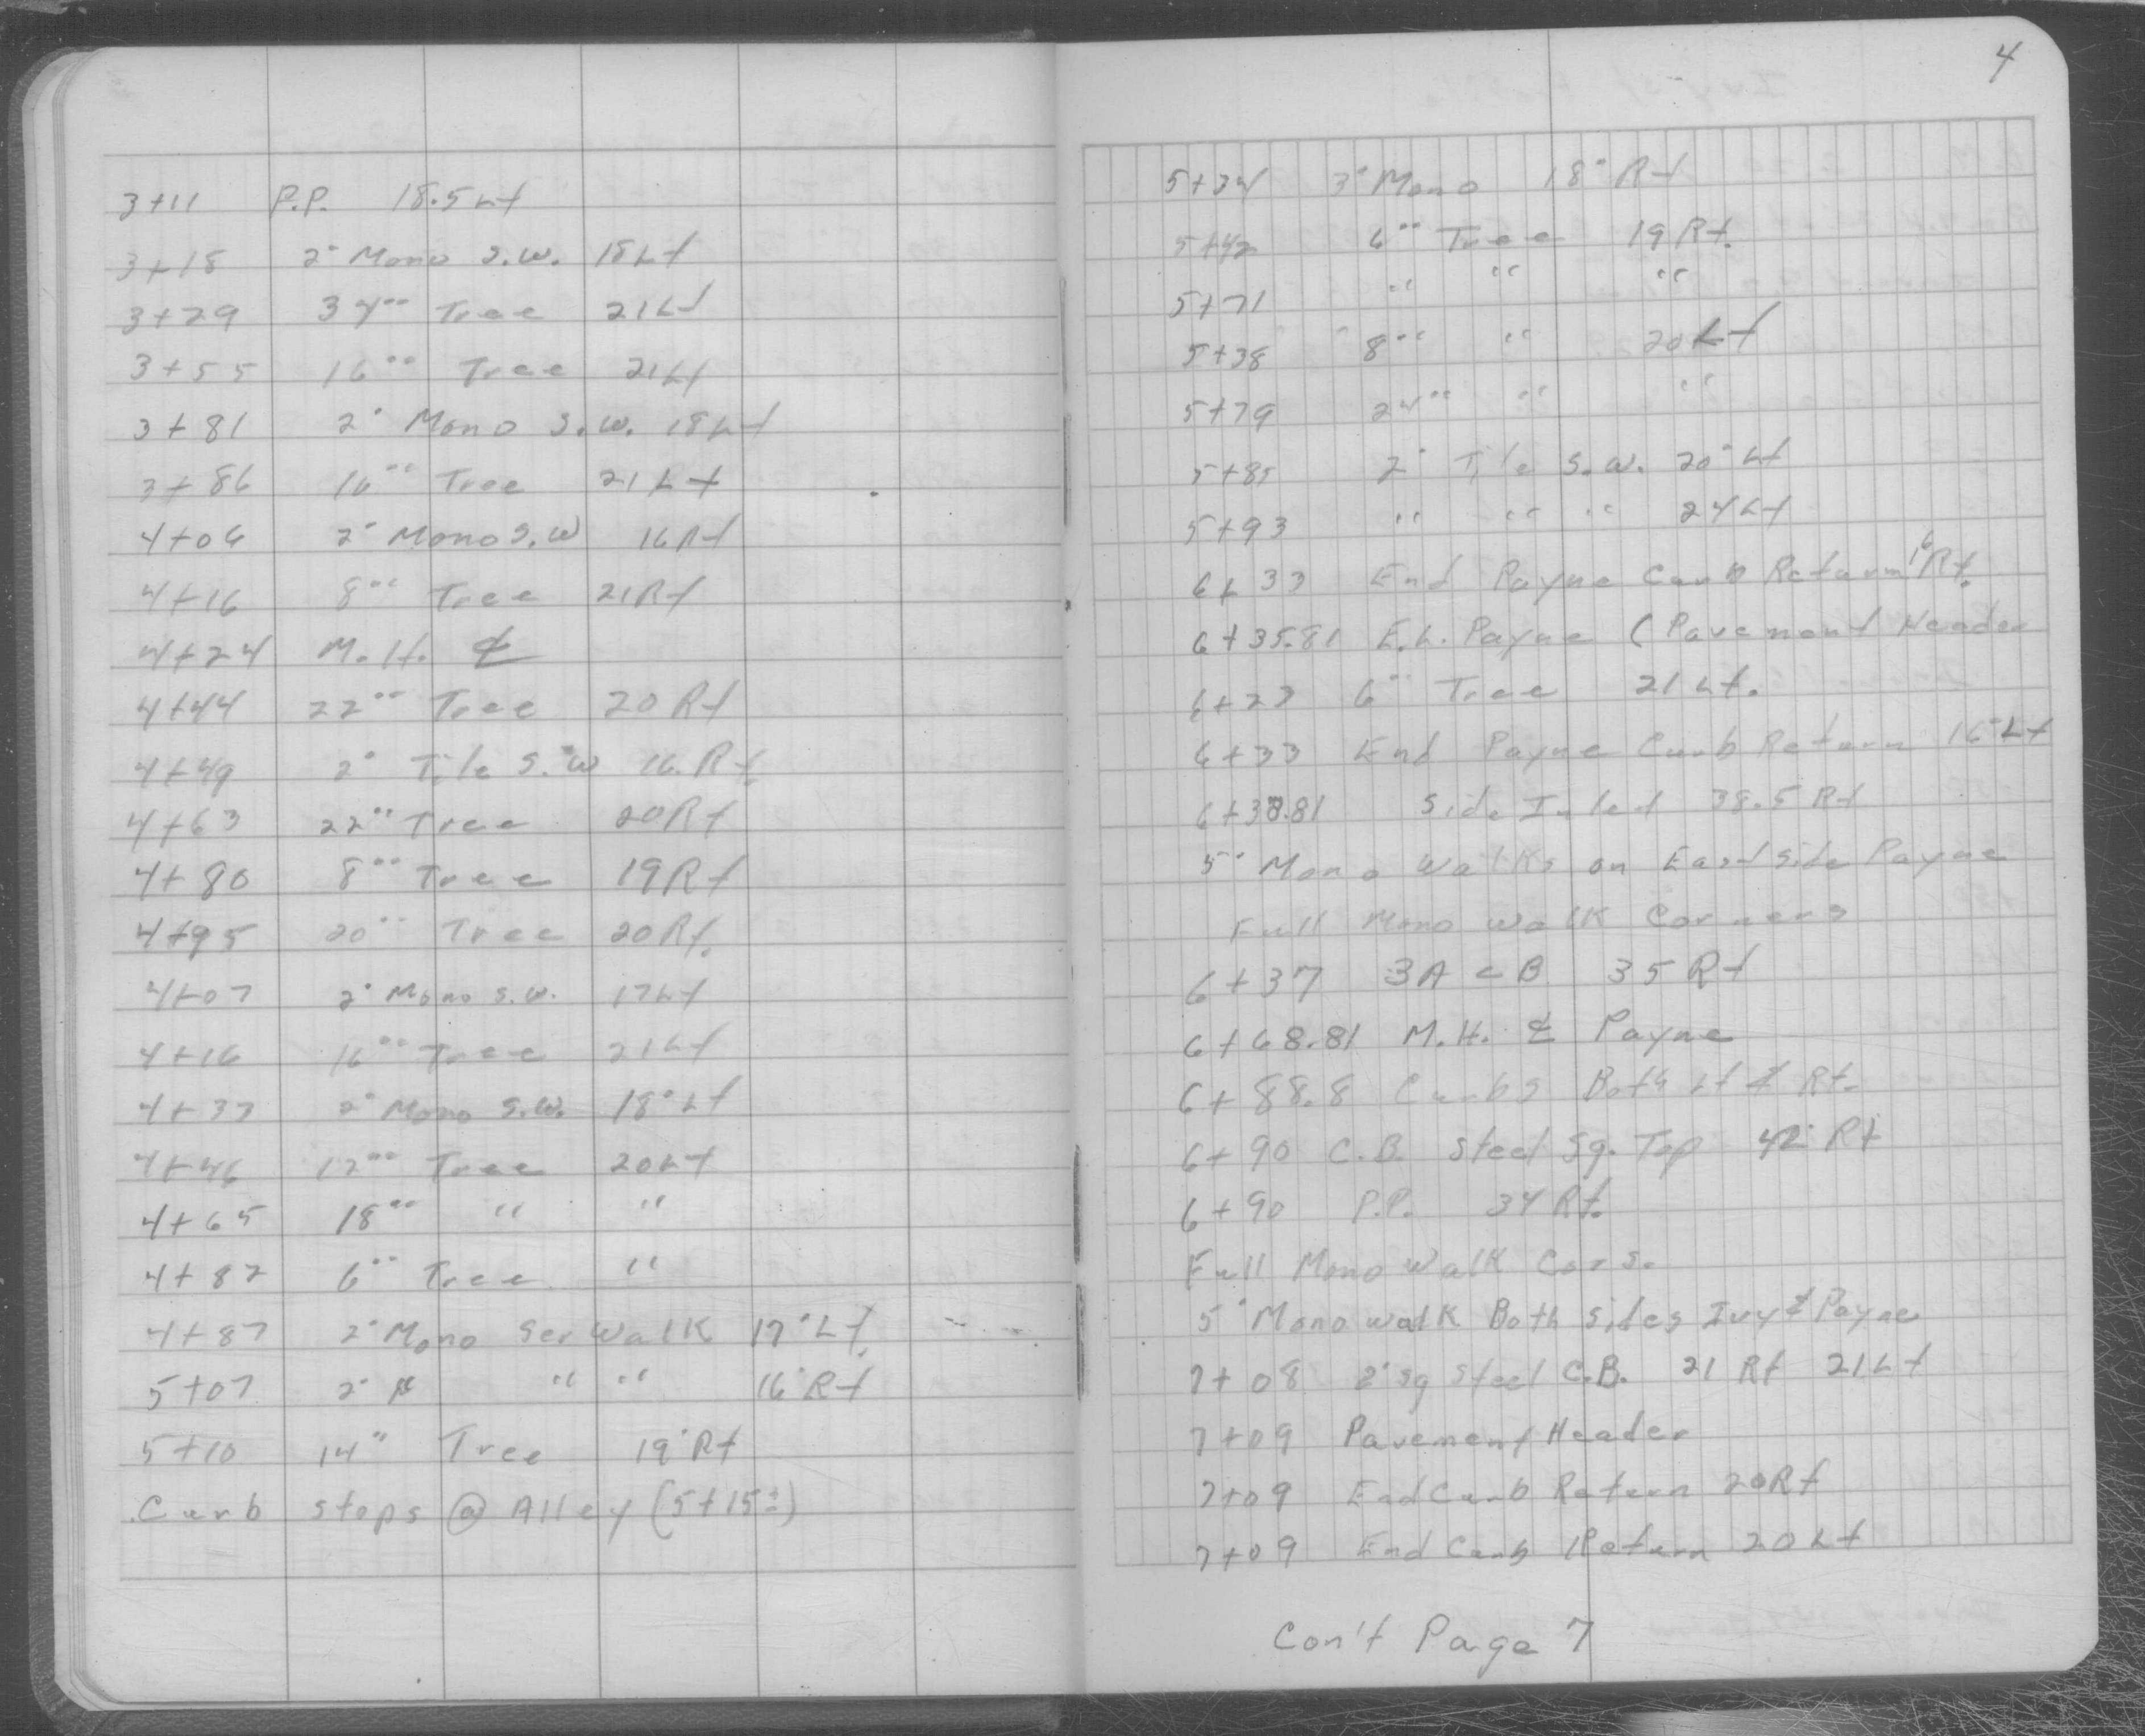 3+11 P.P. 18.5 Lt
3+18 2' Mono S.W. 18 Lt
3+29 34" Tree 21 Lt
3+55 16" Tree 21 Lt
3+81 2' Mono S.W. 18 Lt
3+86 16" Tree 21 Lt
4+06 2' Mono S.W 16 Rt
4+16 8" Tree 21 Rt
4+24 M.H. ℄
4+44 22" Tree 20 Rt
4+49 2' Tile S.W 16 Rt.
4+63 22" Tree 20 Rt
4+80 8" Tree 19 Rt
4+95 20" Tree 20 Rt.
4+07 2' Mono S.W. 17 Lt
4+16 16" Tree 21 Lt
4+37 2' Mono S.W. 18' Lt
4+46 12" Tree 20 Lt
4+65 18" " "
4+82 6" Tree "
4+87 2' Mono Ser Walk 17' Lt.
5+07 2' " " " 16' Rt
5+10 14" Tree 19' Rt
Curb stops @ Alley (5+15±)
4
5+34 3' Mono 18' Rt
5+42 6" Tree 19 Rt.
5+71 " " "
5+38 8" " 20 Lt
5+79 24" " "
5+85 2' Tile S.W. 20' Lt
5+93 " " " 24 Lt
6+33 End Payne Curb Return 16 Rt.
6+35.81 E.L. Payne (Pavement Header
6+23 6" Tree 21 Lt.
6+33 End Payne Curb Return 16' Lt
6+38.81 Side Inlet 38.5 Rt
5' Mono Walks on East Side Payne
Full Mono Walk Corners
6+37 3A CB 35 Rt
6+68.81 M.H. ℄ Payne
6+88.8 Curbs Both Lt & Rt.
6+90 C.B. Steel Sq. Top 42' Rt
6+90 P.P. 34 Rt.
Full Mono Walk Cors.
5' Mono walk Both Sides Ivy & Payne
7+08 2' sq Steel C.B. 21 Rt 21 Lt
7+09 Pavement Header
7+09 End Curb Return 20 Rt
7+09 End Curb Return 20 Lt
Con't Page 7